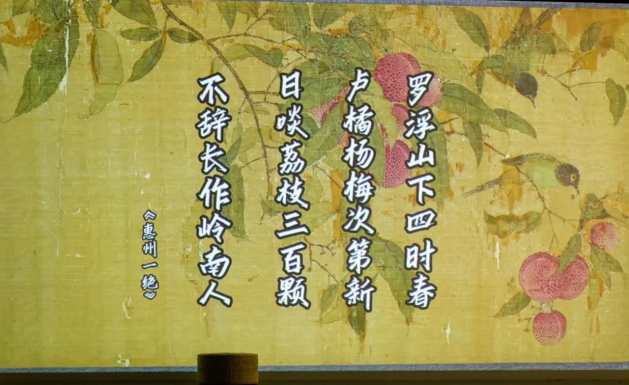 罗浮山下四时春
卢橘杨梅次第新
日啖荔枝三百颗
不辞长作岭南人
《惠州一绝》